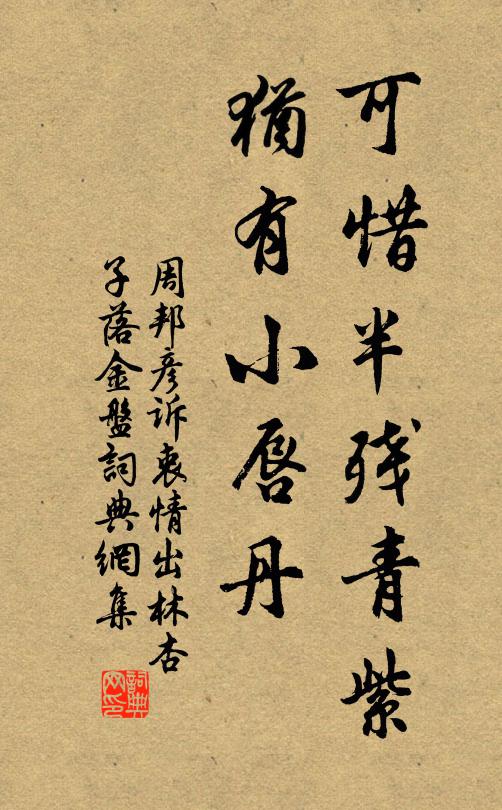 可惜半残青紫
猶有小唇丹
周邦彦訴衷情出林杏
子落金盤詞典網集
詞典网印